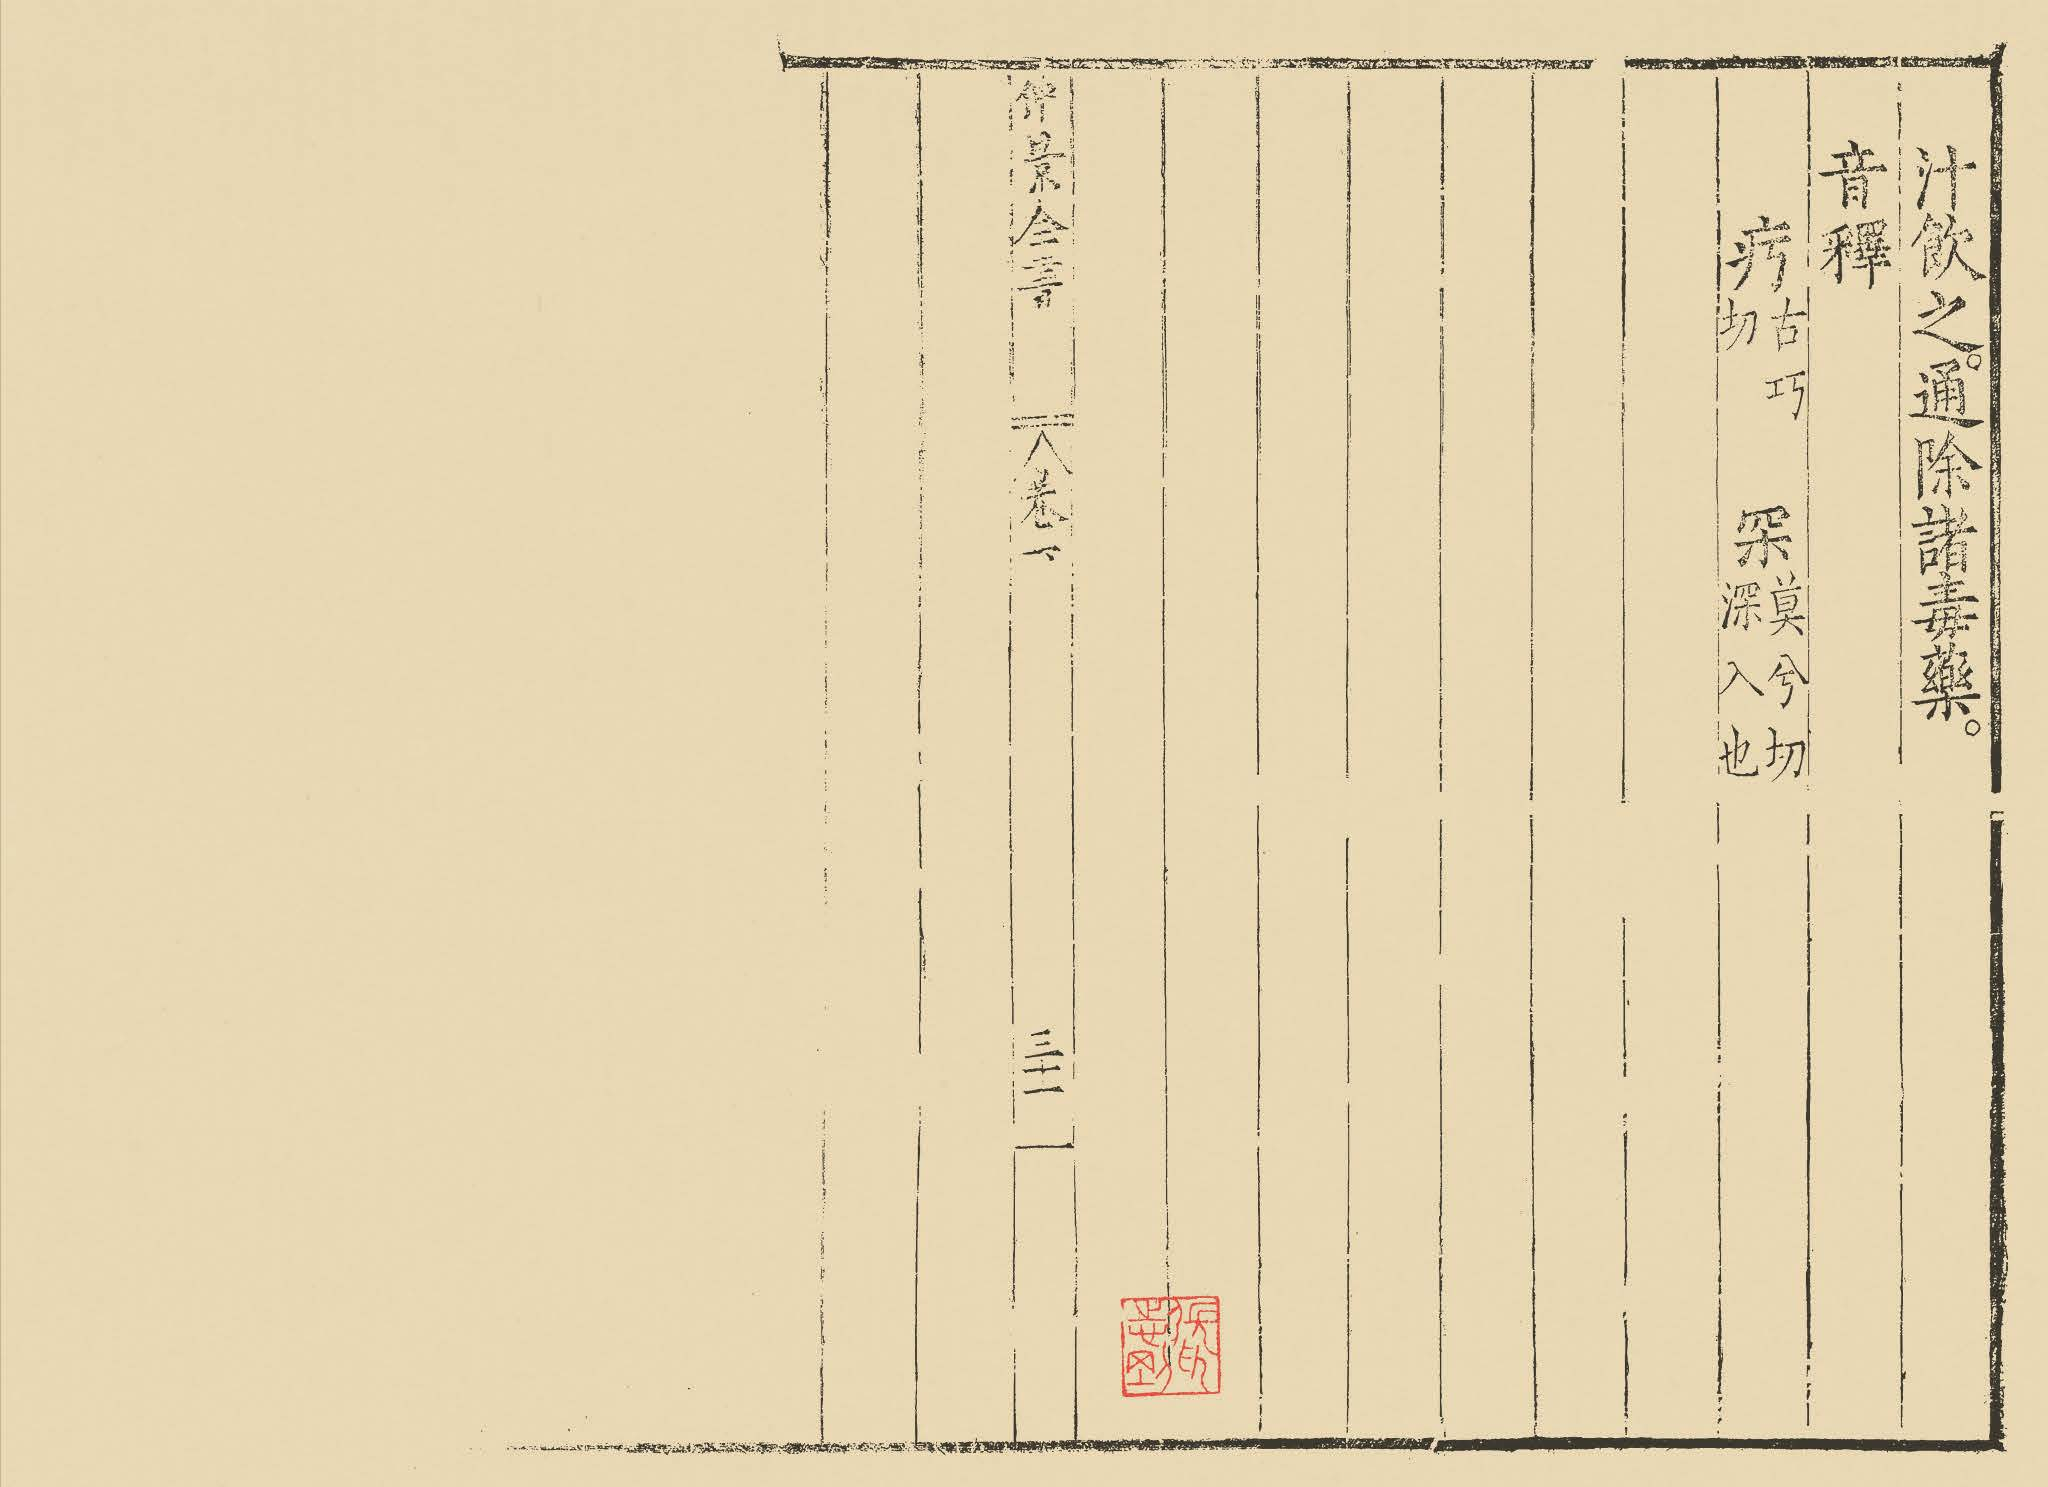 汁飲之。通除諸毒藥。
音釋
㽱古巧切 冞莫兮切深入也
仲景全書 卷下 三十一